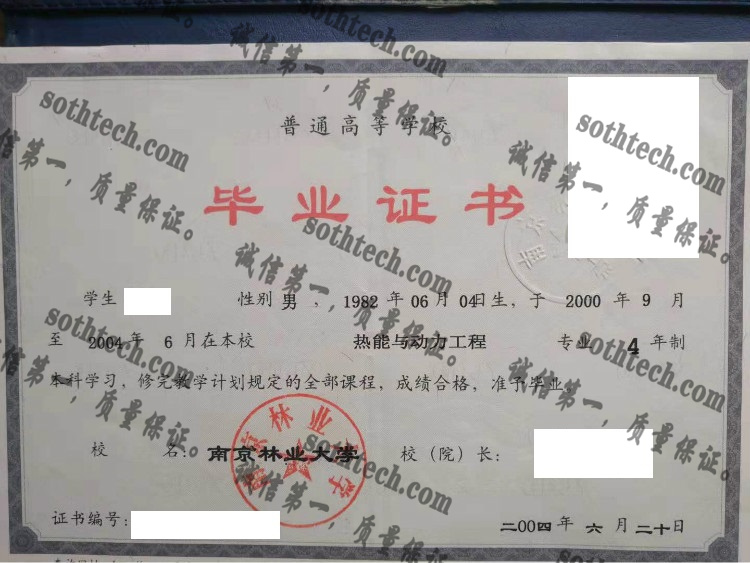 普通高等学校
毕业证书
学生 性别 男 ，1982 年 06 月 04日生，于 2000 年 9 月
至 2004年 6 月在本校 热能与动力工程 专业 4 年制
本科学习，修完教学计划规定的全部课程，成绩合格，准予毕业
校 名：南京林业大学 校（院）长：
证书编号： 二00四年 六 月 二十日
sothtech.com
诚信第一，质量保证。
sothtech.com
诚信第一，质量保证。
sothtech.com
诚信第一，质量保证。
sothtech.com
诚信第一，质量保证。
sothtech.com
诚信第一，质量保证。
sothtech.com
sothtech.com
诚信第一，质量保证。